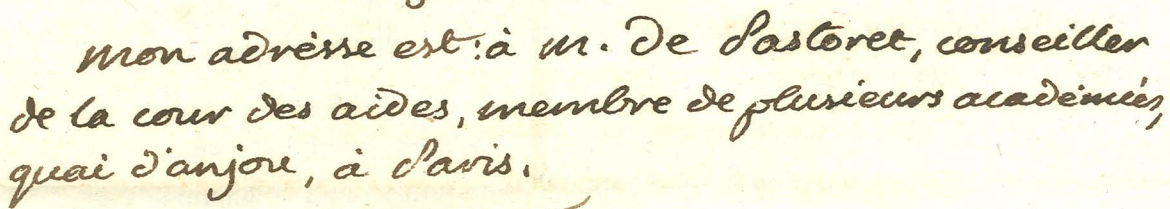 mon adrèsse est: à m. de Pastoret, conseiller
de la cour des aides, membre de plusieurs académies,
quai d'anjou, à Paris.